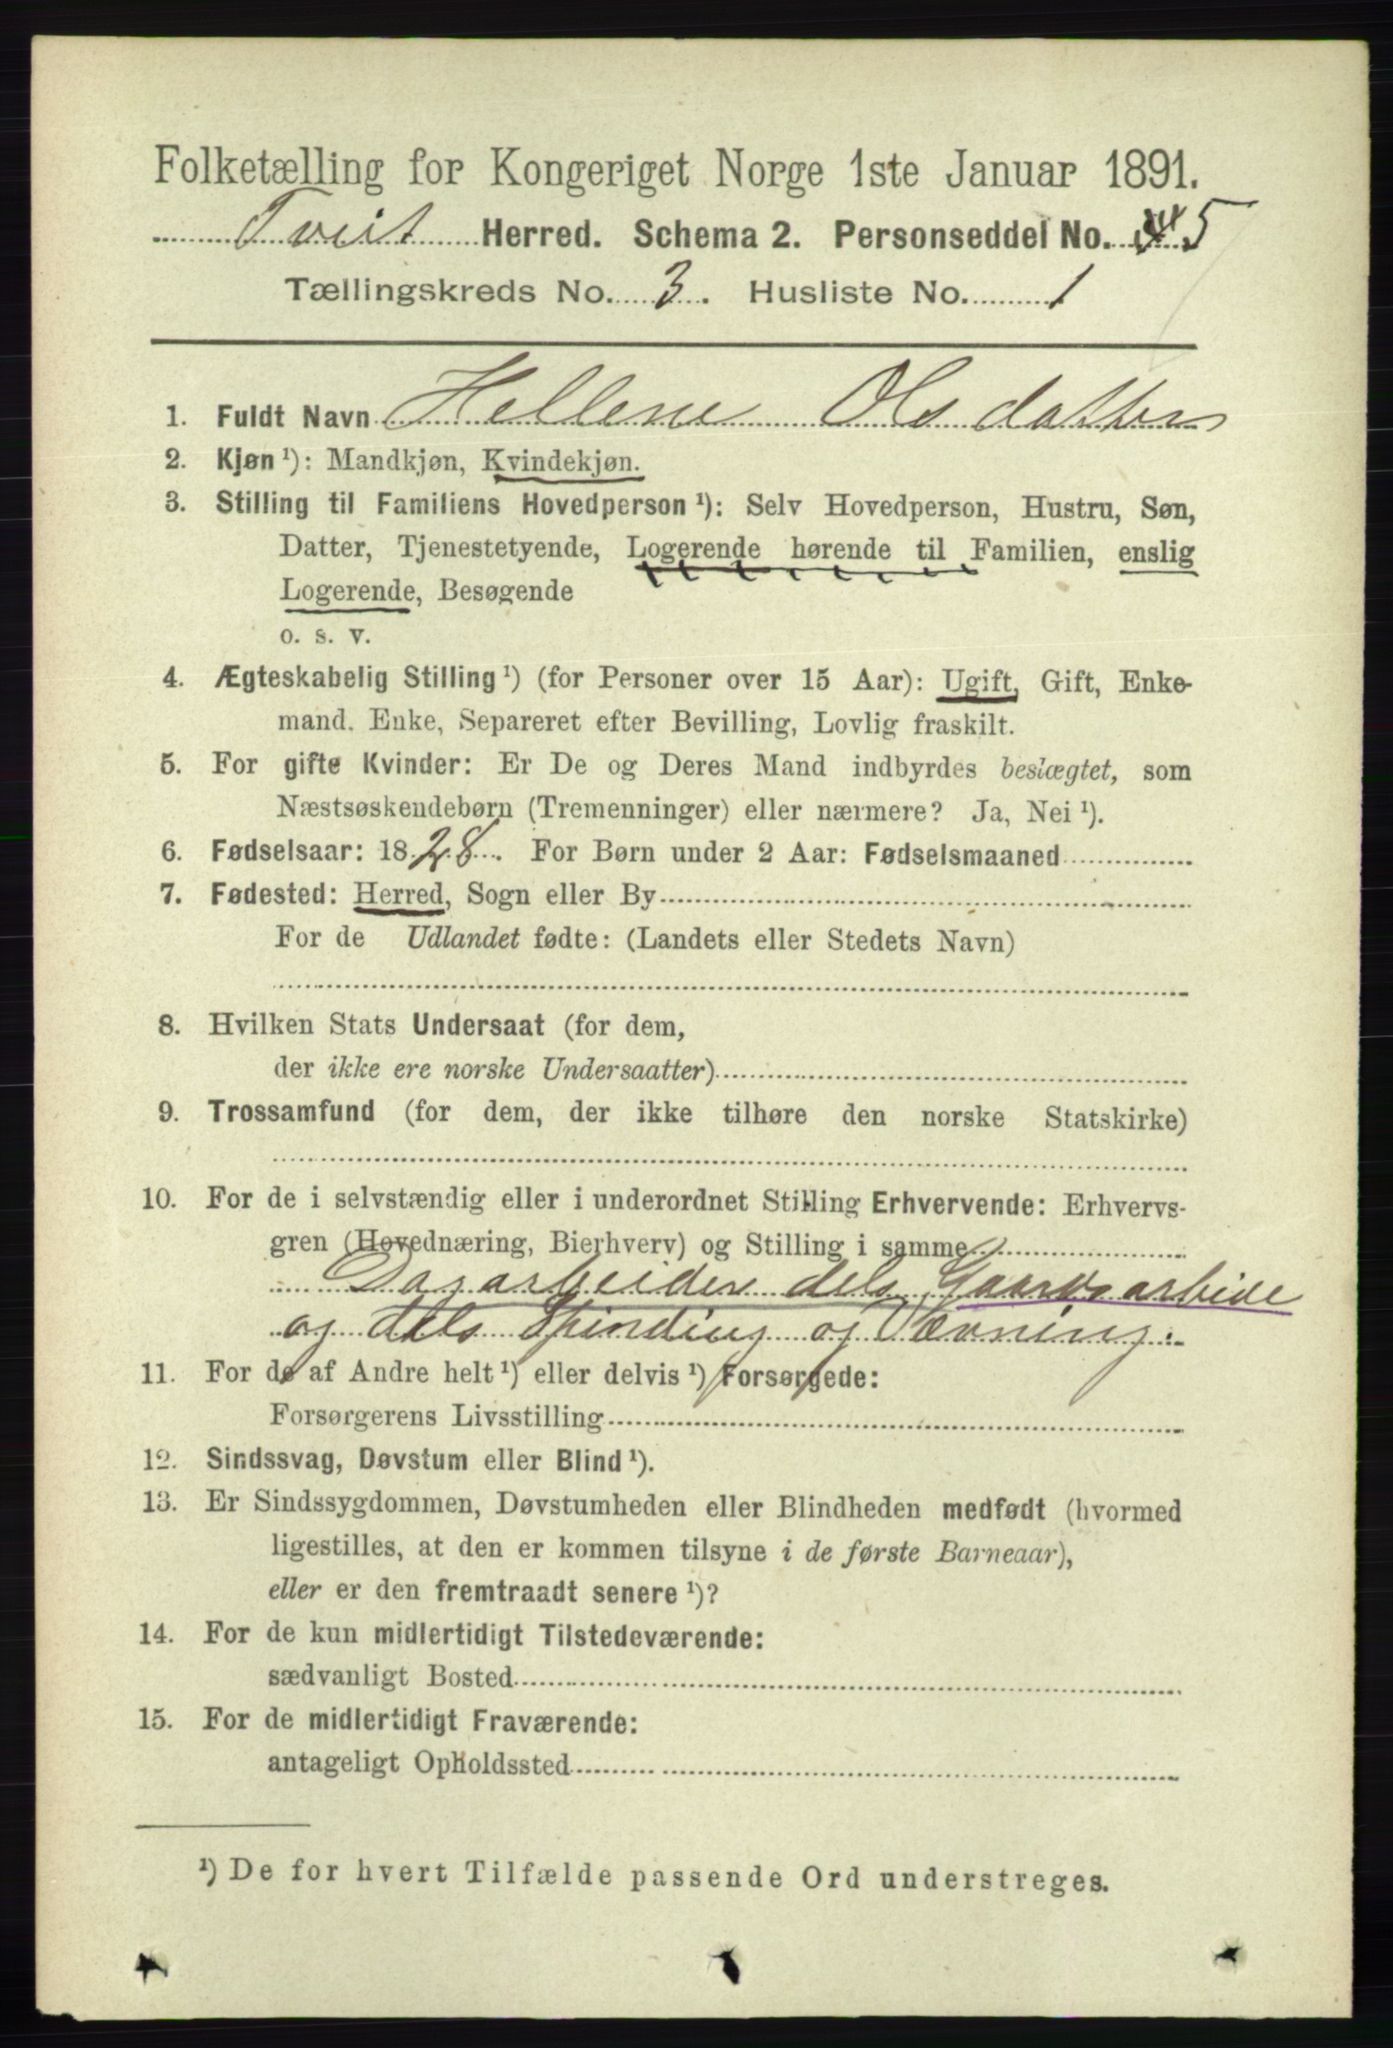 Folketælling for Kongeriget Norge 1ste Januar 1891.
Tveit Herred. Schema 2. Personseddel No. 5
Tællingskreds No. 3. Husliste No. 1
1. Fuldt Navn Hellene Olsdatter
2. Kjøn ¹): Mandkjøn, Kvindekjøn.
3. Stilling til Familiens Hovedperson ¹): Selv Hovedperson, Hustru, Søn,
Datter, Tjenestetyende, Logerende hørende til Familien, enslig
Logerende, Besøgende
o. s. v.
4. Ægteskabelig Stilling ¹) (for Personer over 15 Aar): Ugift, Gift, Enke-
mand. Enke, Separeret efter Bevilling, Lovlig fraskilt.
5. For gifte Kvinder: Er De og Deres Mand indbyrdes beslægtet, som
Næstsøskendebørn (Tremenninger) eller nærmere? Ja, Nei ¹).
6. Fødselsaar: 1828. For Børn under 2 Aar: Fødselsmaaned
7. Fødested: Herred, Sogn eller By
For de Udlandet fødte: (Landets eller Stedets Navn)
8. Hvilken Stats Undersaat (for dem,
der ikke ere norske Undersaatter)
9. Trossamfund (for dem, der ikke tilhøre den norske Statskirke)
10. For de i selvstændig eller i underordnet Stilling Erhvervende: Erhvervs-
gren (Hovednæring, Bierhverv) og Stilling i samme
Dagarbeider dels Gaardsarbeide
og dels Spinding og Vævning.
11. For de af Andre helt ¹) eller delvis ¹) Forsørgede:
Forsørgerens Livsstilling
12. Sindssvag, Døvstum eller Blind ¹).
13. Er Sindssygdommen, Døvstumheden eller Blindheden medfødt (hvormed
ligestilles, at den er kommen tilsyne i de første Barneaar),
eller er den fremtraadt senere ¹)?
14. For de kun midlertidigt Tilstedeværende:
sædvanligt Bosted
15. For de midlertidigt Fraværende:
antageligt Opholdssted
¹) De for hvert Tilfælde passende Ord understreges.